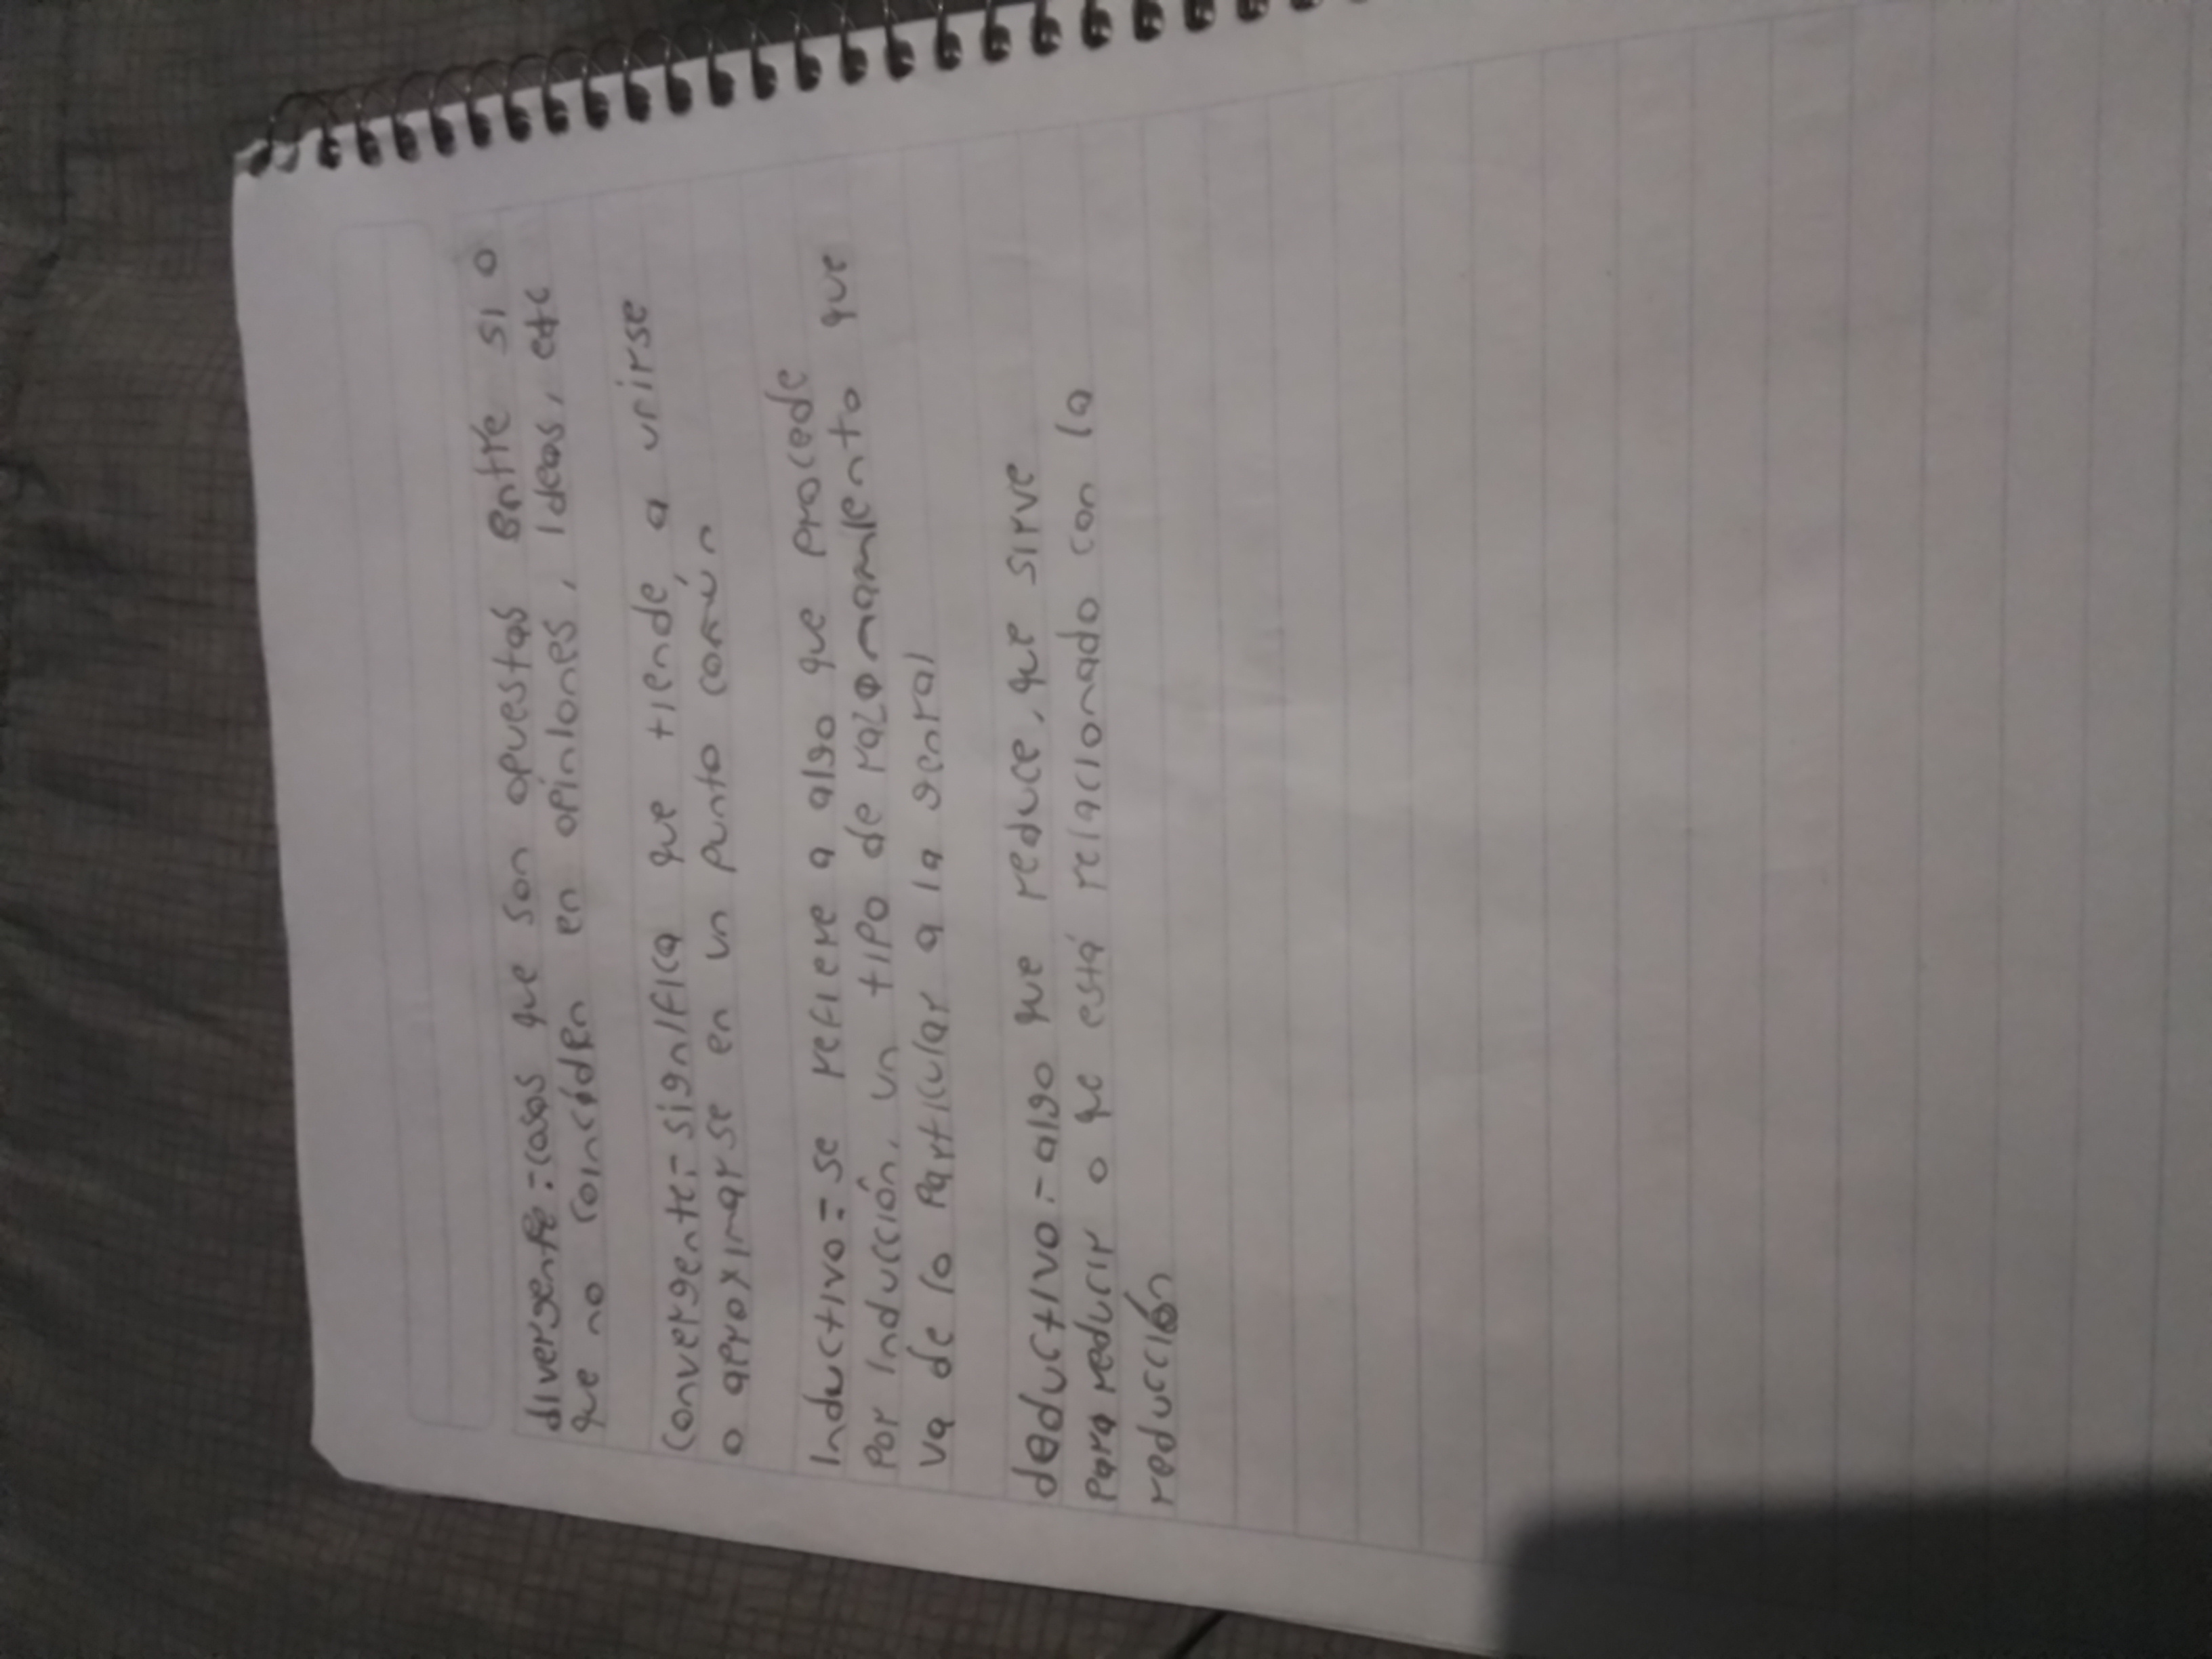 divergente:-cosas que son opuestas entre si o
que no coinciden en opiniones, ideas, etc
Convergente:- significa que tiende a unirse
o aproximarse en un punto común
Inductivo:- se refiere a algo que procede
por inducción, un tipo de razonamiento que
va de lo particular a la genral
deductivo:- algo que reduce, que sirve
para reducir o que está relacionado con la
reducción